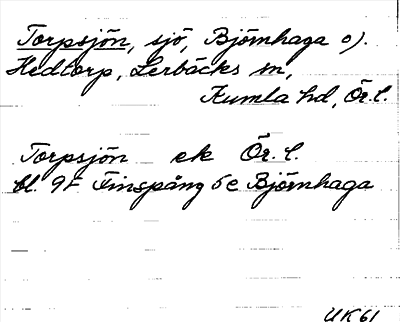 Torpsjön, sjö, Björnhaga o).
Hedtorp, Lerbäcks sn,
Kumla hd, Ör. l.
Torpsjön ek Ör. l.
bl. 9F Finspång 5e Björnhaga
UK61